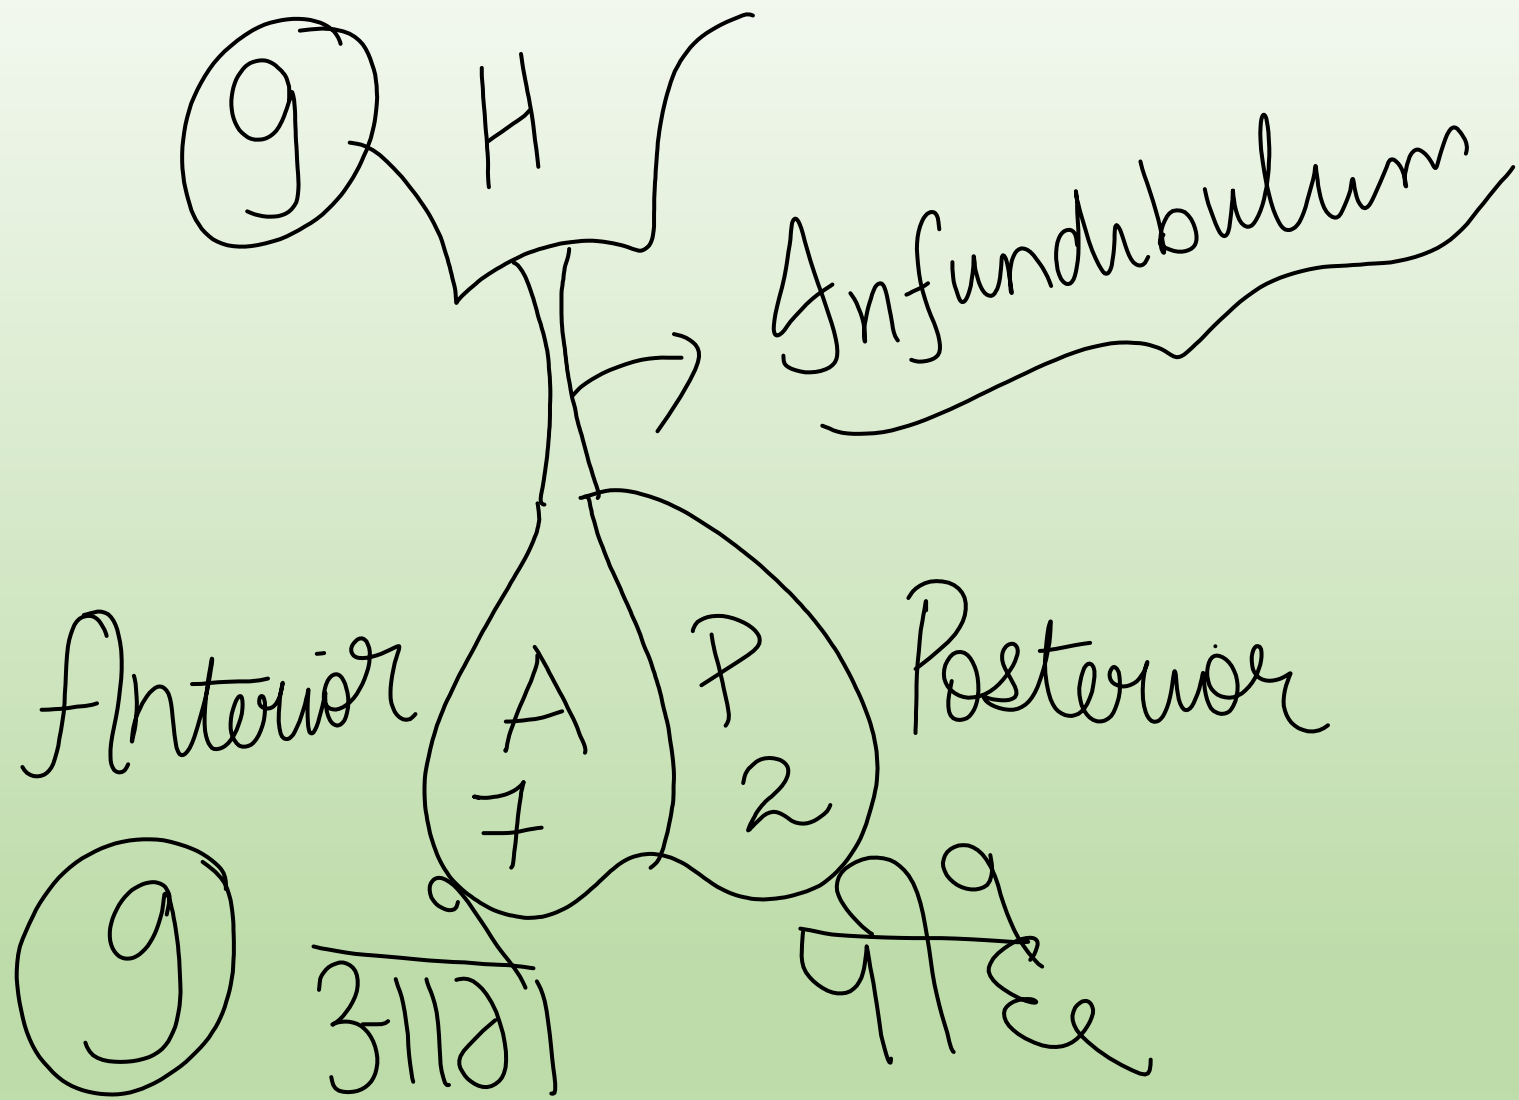 9 H
Infundibulum
Anterior A P Posterior
7 2
9 आगे पीछे